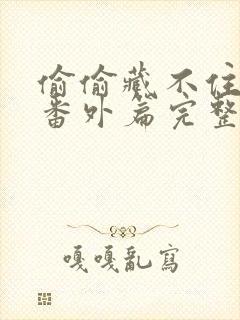 偷偷藏不住
番外篇完整
嘎嘎亂寫